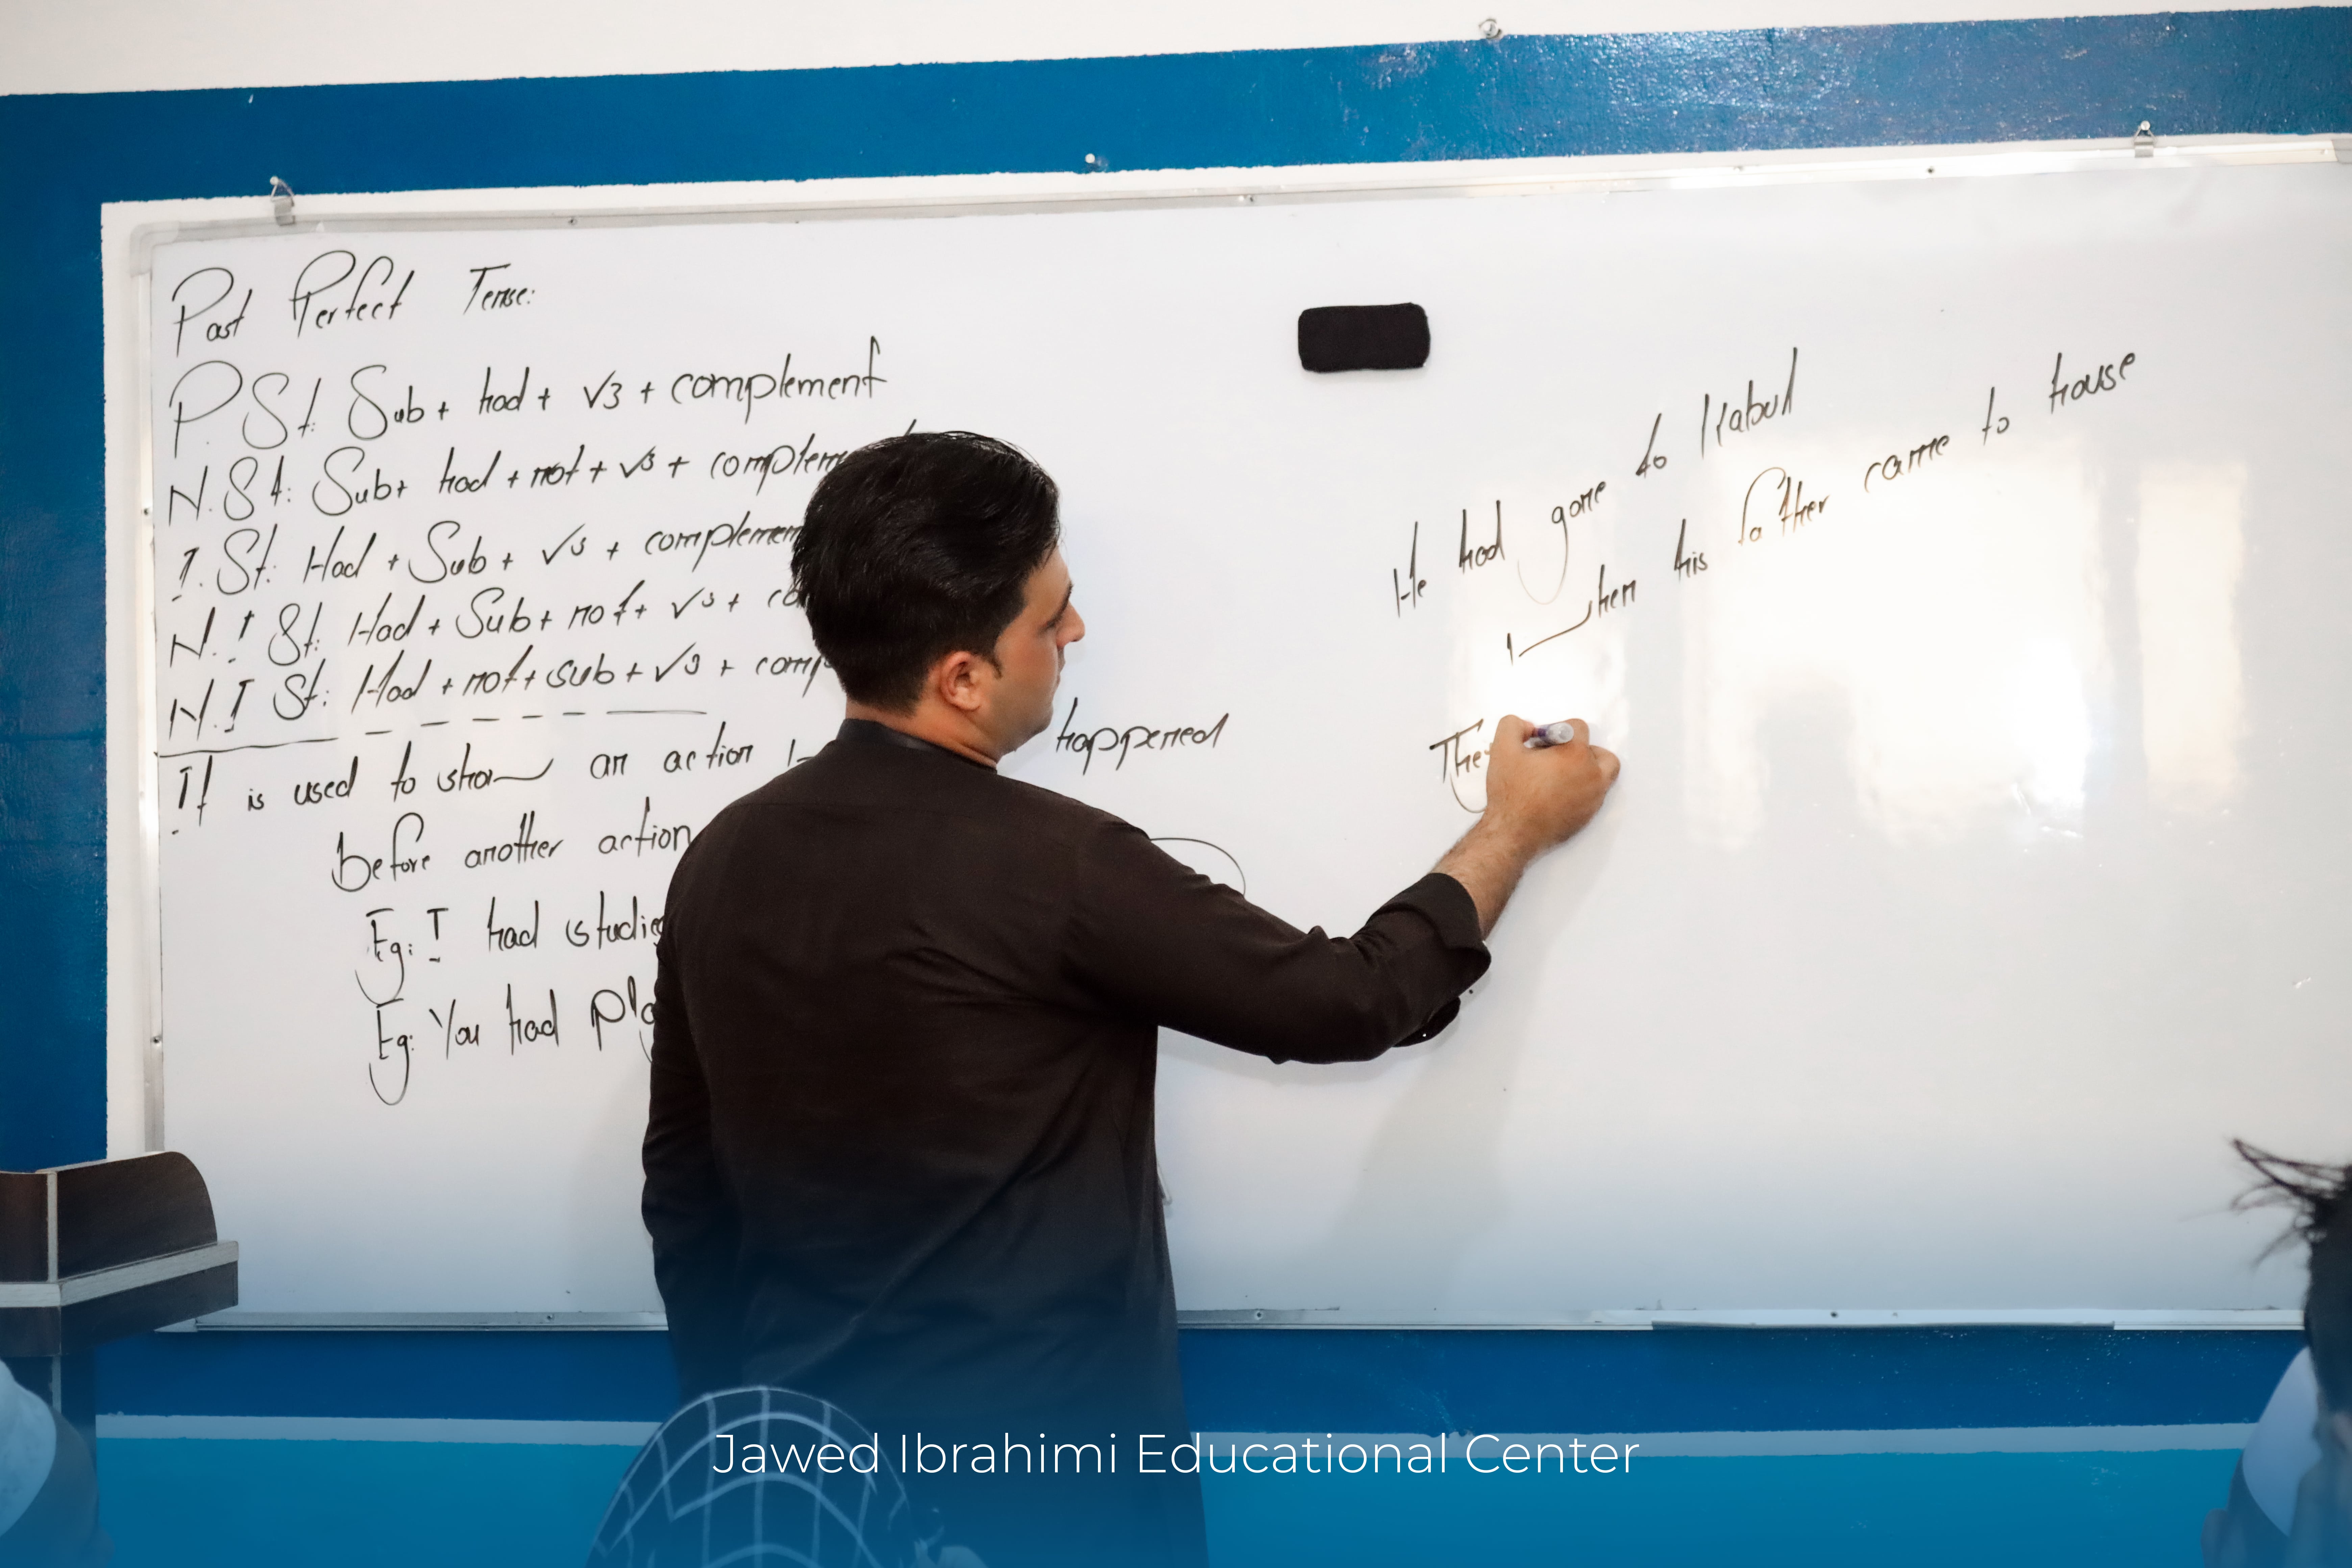 Past Perfect Tense:
P. St: Sub + had + V3 + complement
N. St: Sub + had + not + V3 + complem
I. St: Had + Sub + V3 + complemen
N. I St: Had + Sub + not + V3 +
N. I St: Had + not + sub + V3 + comp
It is used to show an action happened
before another action
Eg: I had studie
Eg: You had pla
He had gone to Kabul
when his father came to house
They
Jawed Ibrahimi Educational Center